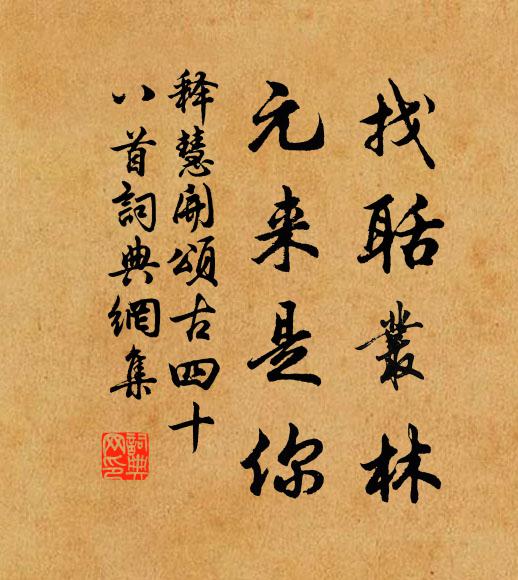 找聒叢林
元来是你
释慧開頌古四十
八首詞典網集
詞典
网印